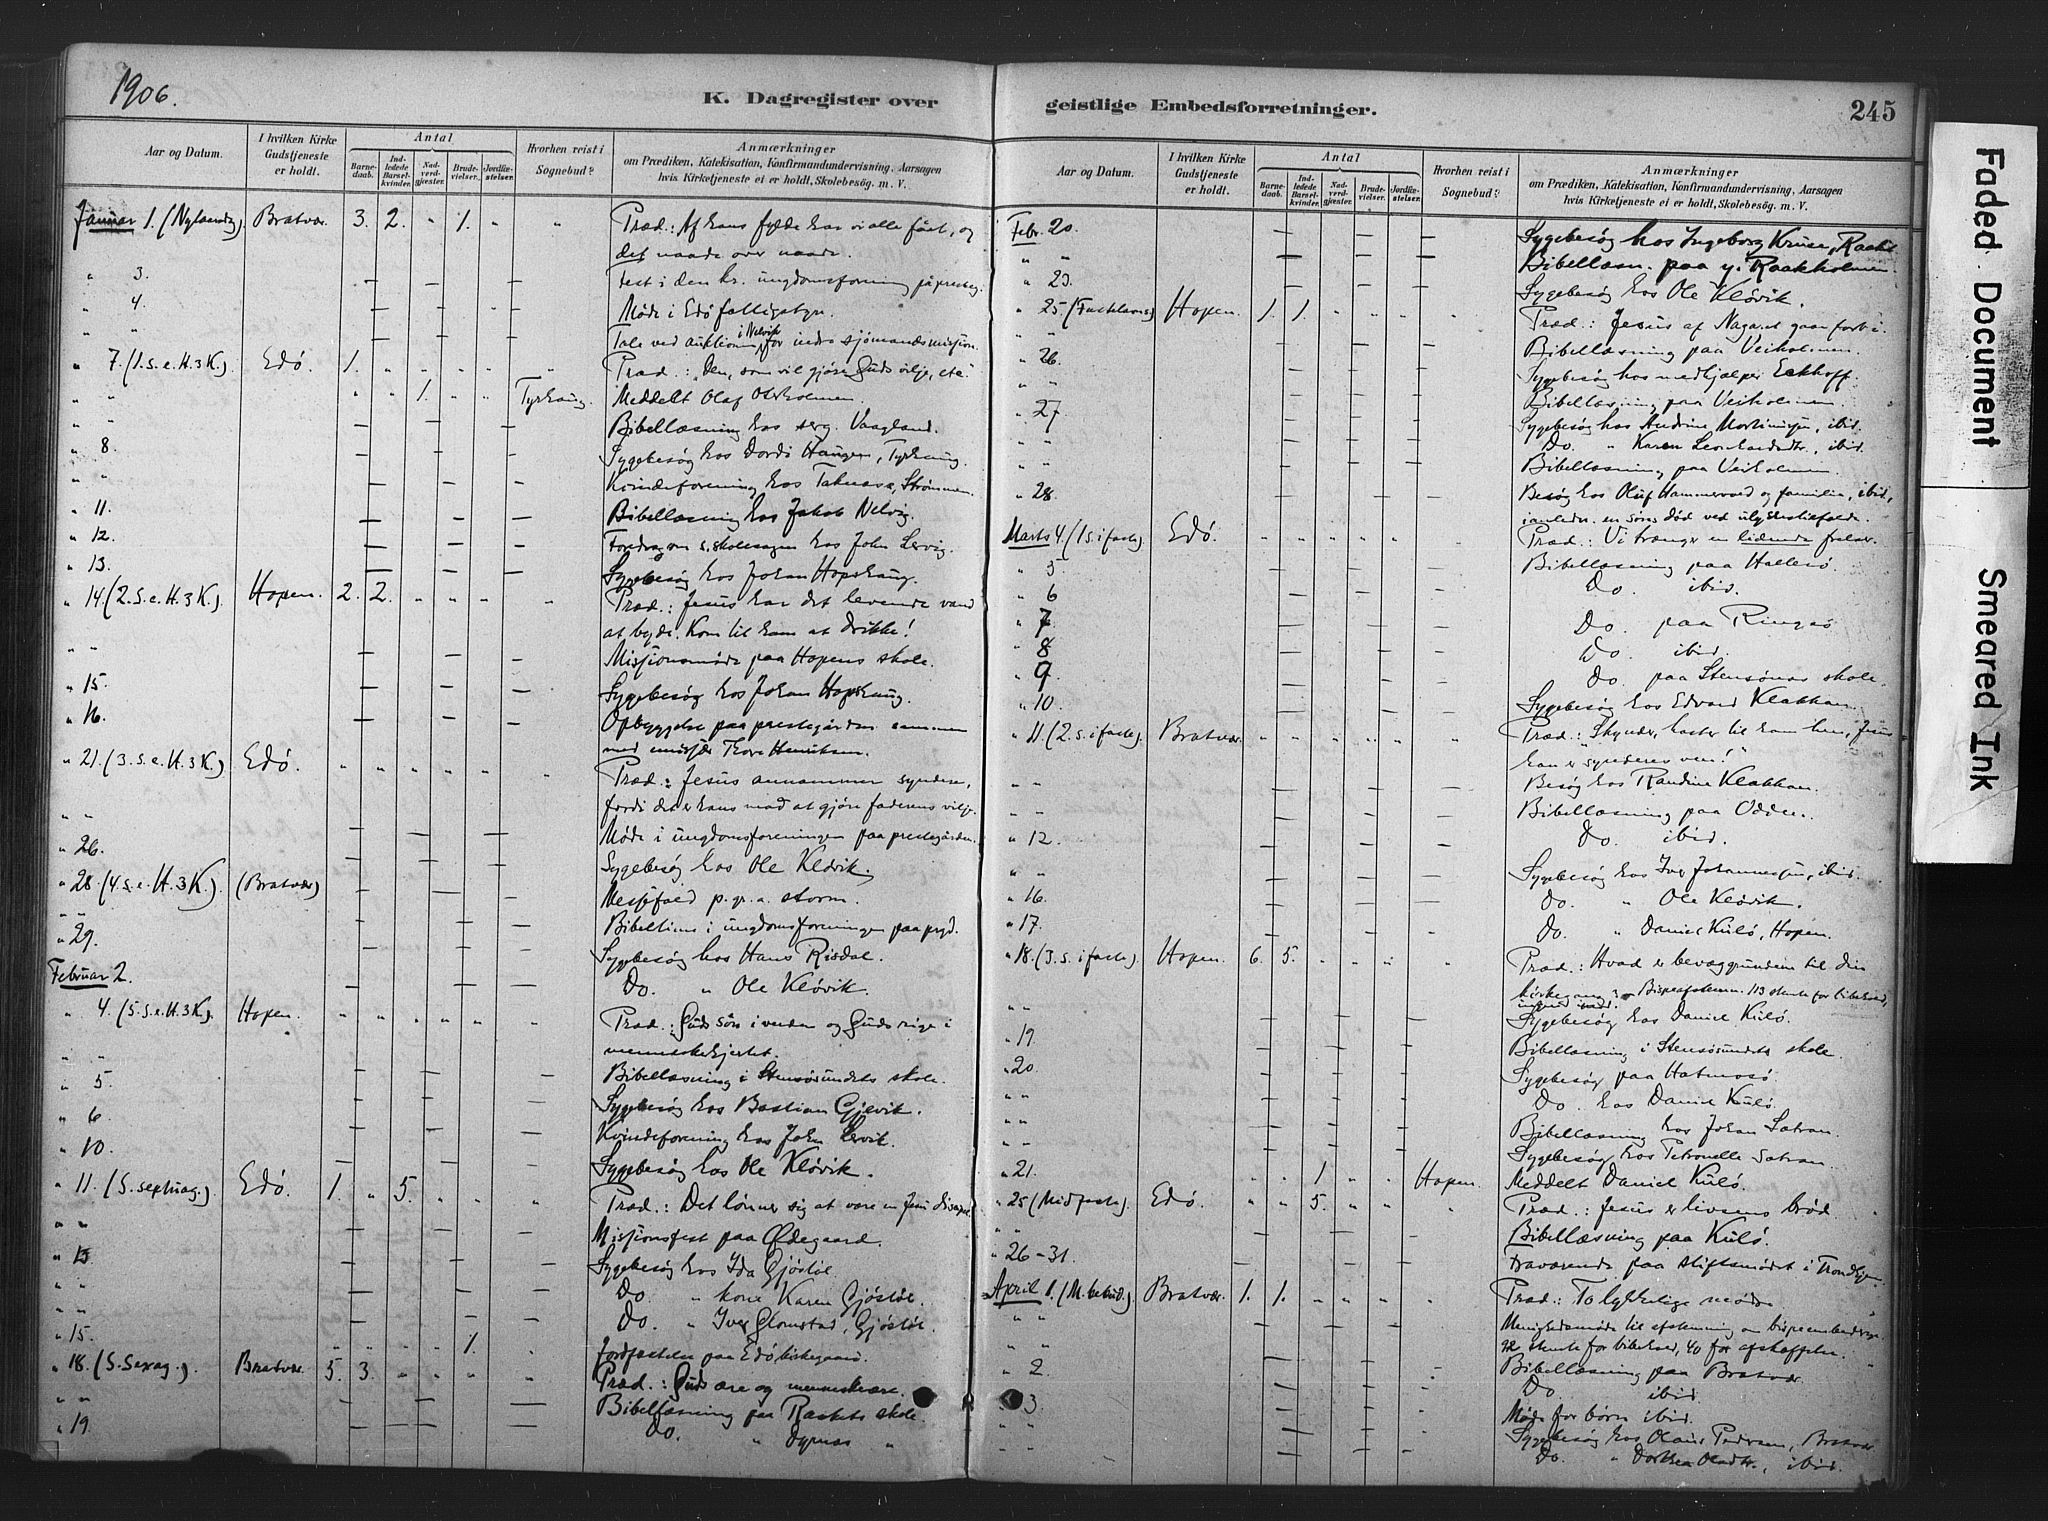 1906.
K. Dagregister over geistlige Embedsforretninger.
245
Aar og Datum.
I hvilken Kirke Gudstjeneste er holdt.
Antal
Barnedaab.
Indledede Barselkvinder.
Nadverdgjæster.
Brudevielser.
Jordfæstelser.
Hvorhen reist i Sognebud?
Anmærkninger
om Prædiken, Katekisation, Konfirmandundervisning, Aarsagen
hvis Kirketjeneste ei er holdt, Skolebesøg. m. V.
Januar 1. (Nytaarsdg). Bratvær 3. 2. " 1. " " Præd.: Af hans fylde har vi alle fået, og
det naade over naade.
" 3. Fest i den kr. ungdomsforening på presteg.
" 4. Møde i Edø fattigstyre.
" " Tale ved auktionen i Nelvik for indre sjømandsmission.
" 7. (1. s. e. H. 3 K.) Edø. 1. " " " " " Præd.: "Den, som vil gjøre Guds vilje, etc."
" " " " 1. " " Tyrhaug. Meddelt Olaf Olsholmen.
" " Bibellæsning hos serg. Vaagland.
" 8. Sygebesøg hos Dordi Haugen, Tyrhaug.
" " Kvindeforening hos Taknæs, Strømmen.
" 11. Bibellæsning hos Jakob Nelvig.
" 12. Foredrag om s.skolesagen hos John Lervig.
" 13. Sygebesøg hos Johan Hopshaug.
" 14. (2. s. e. H. 3 K.). Hopen. 2. 2. " " " " Præd.: Jesus har det levende vand
at byde. Kom til ham at drikke!
" " Missionsmøde paa Hopens skole.
" 15. Sygebesøg hos Johan Hopshaug.
" 16. Opbyggelse paa prestegården sammen
med emissær Thore Henriksen.
" 21. (3. s. e. H. 3 K.) Edø. " " " " " " Præd.: Jesus annammer syndere,
fordi det er hans mad at gjøre faderens vilje.
" " Møde i ungdomsforeningen paa prestegården.
" 26. Sygebesøg hos Ole Kløvik.
" 28. (4. s. e. H. 3 K.). (Bratvær) Messefald p. gr. a. storm.
" " Bibeltime i ungdomsforeningen paa prgd.
" 29. Sygebesøg hos Hans Risdal.
Februar 2. Do. " Ole Kløvik.
" 4. (5. s. e. H. 3 K). Hopen. " " " " " " Præd.: Guds søn i verden og Guds rige i
menneskehjertet.
" " Bibellæsning i Stensøsundets skole.
" 5. Sygebesøg hos Bastian Gjevik.
" 6. Kvindeforening hos John Lervik.
" 10. Sygebesøg hos Ole Kløvik.
" 11. (S. septuag.). Edø. 1. " 5. " " " Præd.: Det lønner sig at være en Jesu discipel.
" " Missionsfest paa Ødegaard.
" 13. Sygebesøg hos Ida Gjøstøl.
" " Do. " kone Karen Gjøstøl.
" " Do. " Iver Glomstad, Gjøstøl.
" 15. " " " 1. Jordfæstelse paa Edø kirkegaard.
" 18. (S. Sexag.). Bratvær. 5. 3. " " " Præd.: Guds ære og menneskeære.
" " Bibellæsning paa Raakets skole.
" 19. Do. " Dyrnæs "
Aar og Datum.
I hvilken Kirke Gudstjeneste er holdt.
Antal
Barnedaab.
Indledede Barselkvinder.
Nadverdgjæster.
Brudevielser.
Jordfæstelser.
Hvorhen reist i Sognebud?
Anmærkninger
om Prædiken, Katekisation, Konfirmandundervisning, Aarsagen
hvis Kirketjeneste ei er holdt, Skolebesøg. m. V.
Febr. 20. Sygebesøg hos Ingeborg Kruse, Raaket
" " Bibellæsn. paa y. Raakholmen.
" 23. Sygebesøg hos Ole Kløvik.
" 25. (Fastelavns) Hopen. 1. 1. " " " " Præd.: Jesus af Nazaret gaar forbi.
" " Bibellæsning paa Veiholmen.
" 26. Sygebesøg hos medhjælper Eckhoff.
" " Bibellæsning paa Veiholmen.
" 27. Sygebesøg hos Andrine Mortinusen, ibid.
" " Do. " Karen Leonhardsdtr., ibid.
" " Bibellæsning paa Veiholmen.
" 28. Besøg hos Oluf Hammervold og familie, ibid.,
i anledn. en søns død ved ulykkestilfælde.
Marts 4. (1 s. i faste) Edø. " " " " " " Præd.: Vi trænger en lidende frelser.
" 5 Bibellæsning paa Hallesø.
" 6 Do. ibid.
" 7. Do. paa Ringsø
" 8 Do. ibid.
" 9 Do. paa Stensønæs skole.
" 10. Sygebesøg hos Edvard Klakken.
" 11. (2. s. i faste). Bratvær. " " " " " " Præd.: Skynder, haster til ham hen, Jesus
han er synderes ven!"
" " Besøg hos Randine Klakken.
" " Bibellæsning paa Odden.
" 12. Do. ibid.
" " Sygebesøg hos Iver Johannessen, ibid.
" 16. Do. " Ole Kløvik.
" 17. Do. " Daniel Kulø, Hopen.
" 18. (3. s. i faste). Hopen. 6. 5. " " " " Præd.: Hvad er bevæggrunden til din
kirkegang? Bispeafstemn. 113 stemte for bibehold,
ingen mod.
" " Sygebesøg hos Daniel Kulø.
" 19. Bibellæsning i Stensøsundets skole.
" 20. Sygebesøg paa Hatmosø.
" " Do. hos Daniel Kulø.
" " Bibellæsning hos Johan Satran.
" " Sygebesøg hos Petronelle Satran.
" 21. " " 1 " " Hopen. Meddelt Daniel Kulø.
" 25 (Midfaste). Edø. " " 5. " " " Præd.: Jesus er livsens brød.
" " Bibellæsning paa Kulø.
" 26-31. Fraværende paa stiftsmødet i Trondhjem.
April 1. (M. bebud.). Bratvær. 1. 1. " " " " Præd.: To lykkelige møder
" " Menighedsmøde til afstemning om bispeembederne.
22 stemte for bibehold, 40 for afskaffelse.
" 2 Bibellæsning paa Bratvær.
" " Do. ibid.
" 3. Møde for børn ibid.
" " Sygebesøg hos Olaus Pedersen, Bratvær
" " Do. " Dorthea Olsdtr., ibid.
Faded Document
Smeared Ink